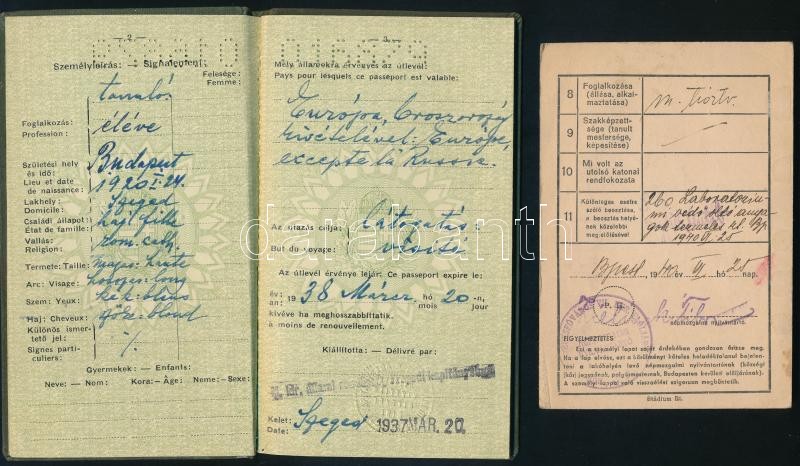 — 2 —
Személyleírás: — Signalement:
Felesége:
Femme:
tanuló
Foglalkozás:
Profession:
élève
Születési hely
és idő:
Lieu et date
de naissance:
Budapest
1920 I. 24.
Lakhely:
Domicile:
Szeged
Családi állapot:
État de famille:
haj. fille
Vallás:
Religion:
rom. cath.
Termete: Taille:
magas: haute
Arc: Visage:
hosszas: long
Szem: Yeux:
kék: bleus
Haj: Cheveux:
szőke: blond
Különös ismer-
tető jel:
Signes parti-
culiers:
%
Gyermekek: — Enfants:
Neve: — Nom: Kora: — Âge: Neme: — Sexe:
016829
3
Mely államokra érvényes az útlevél:
Pays pour lésquels ce passeport est valable:
Európa, Oroszország
kivételével: Europe,
excepté la Russie.
Az utazás célja:
But du voyage:
látogatás:
visite
Az útlevél érvénye lejár: Ce passeport expire le:
év:
an: 1938 Márc. hó
mois 20-n,
jour
kivéve ha meghosszabbíttatik.
à moins de renouvellement.
Kiállította: — Délivré par:
Kelet:
Date: Szeged 1937 MÁR. 20.
8 Foglalkozása
(állása, alkal-
maztatása)
m. Tisztv.
9 Szakképzett-
sége (tanult
mestersége,
képesítése)
—
10 Mi volt az
utolsó katonai
rendfokozata
11 Különleges esetre
szóló beosztása,
a beosztás helyé-
nek közelebbi
megjelölésével
260 Laboratóriu-
mi védő oltó anya-
gok termelés
1940 VI. 25
Bpest, 1940 VI hó 25 nap.
népmozgalmi nyilvántartó.
FIGYELMEZTETÉS
Ezt a személyi lapot saját érdekében gondosan őrizze meg.
Ha a lap elvész, ezt a körülményt köteles haladéktalanul bejelen-
teni a lakóhelyén levő népmozgalmi nyilvántartónak (községi
(kör) jegyzőnek, polgármesternek, Budapesten kerületi elöljárónak).
A személyi lappal való visszaélést szigorúan megbüntetik.
Stádium Rt.
darabanth